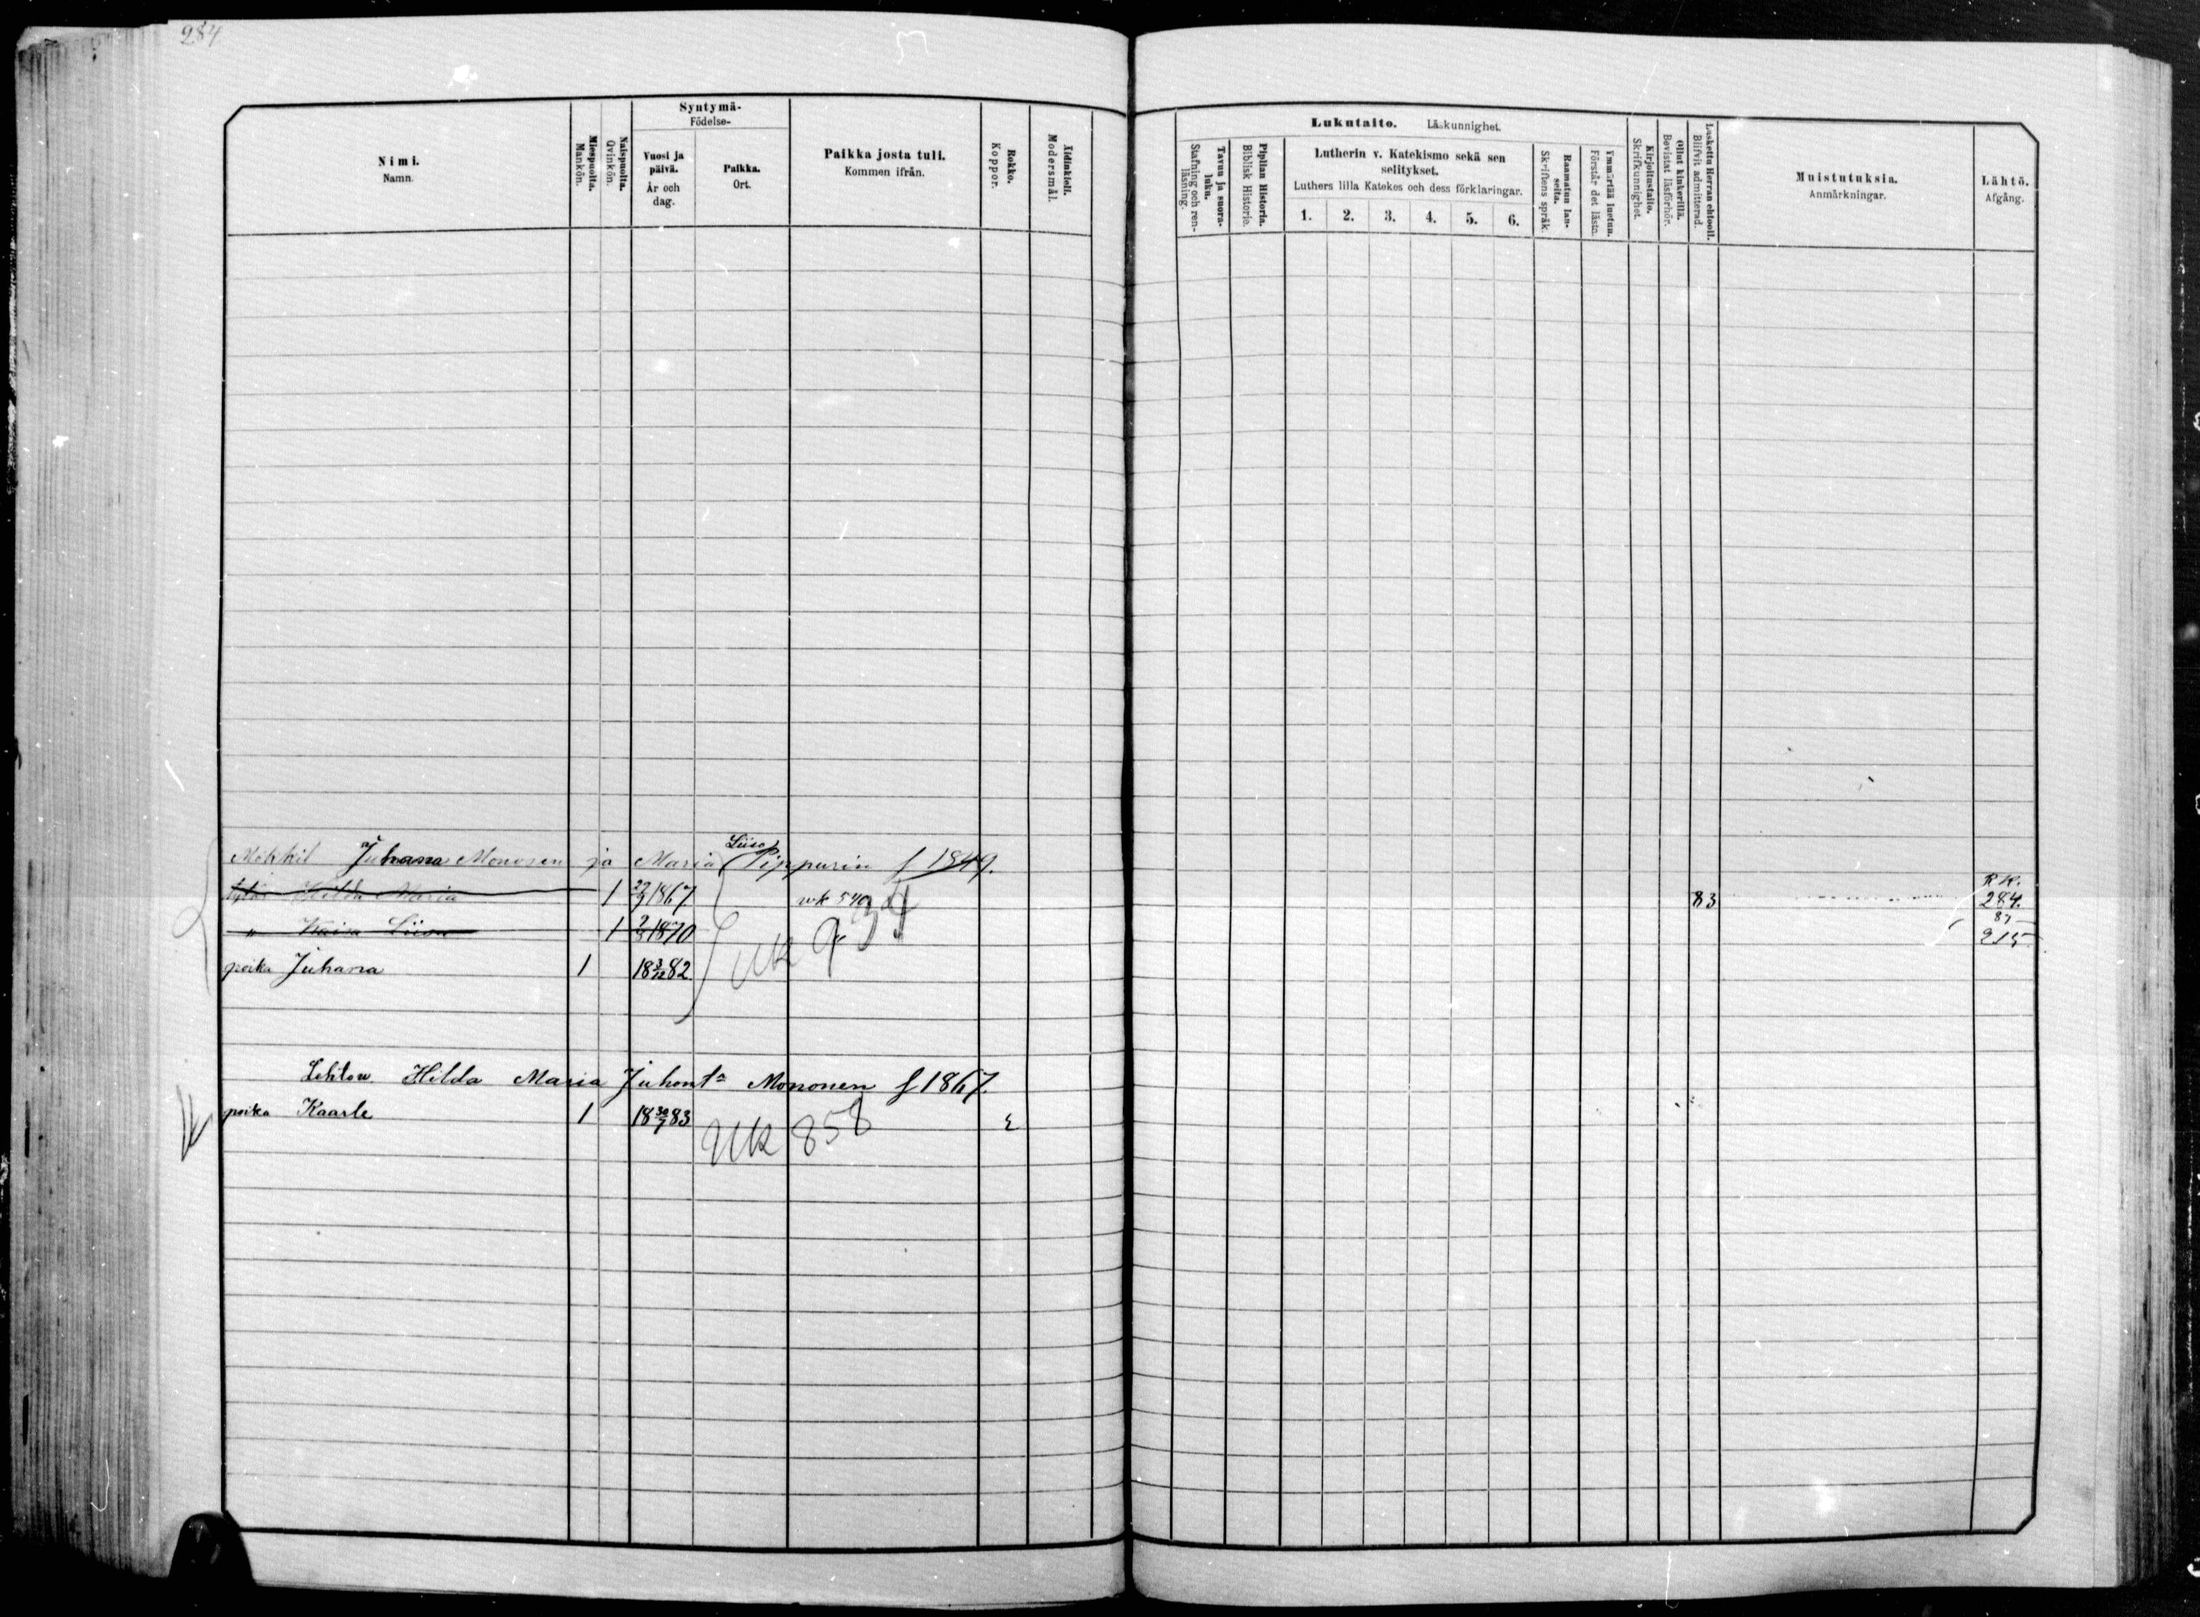 284
Nimi.
Namn.
Miespuolia.
Mankön.
Naispuolia.
Qvinkön.
Syntymä-
Födelse-
Vuosi ja
päivä.
År och
dag.
Paikka.
Ort.
Paikka josta tuli.
Kommen ifrån.
Rokko.
Koppor.
Äidinkieli.
Modersmål.
Lukutaito. Läskunnighet.
Tavuu ja suora-
luku.
Stafning och ren-
läsning.
Piplian Historia.
Biblisk Historie.
Lutherin v. Katekismo sekä sen
selitykset.
Luthers lilla Katekes och dess förklaringar.
1. 2. 3. 4. 5. 6.
Raamatun lau-
seita.
Skriftens språk.
Ymmärtää luetun.
Förstår det lästa.
Kirjoitustaito.
Skrifkunnighet.
Ollut kinkerillä.
Bevistat läsförhör.
Laskettu Herran ehtooll.
Blifvit admitterad.
Muistutuksia.
Anmärkningar.
Lähtö.
Afgång.
Liisa
Mökkil Juhana Monosen ja Maria Pippurin f 1849.
tytär Hilda Maria 1 27/9 1867 wk 540 83 RK. 284.
" Kaisa Liisa 1 2/3 1870 " 87 215
poika Juhana 1 18 3/12 82
Uk 934
Lehtow Hilda Maria Juhont:r Mononen f 1867.
poika Kaarle 1 18 30/7 83
Uk 858